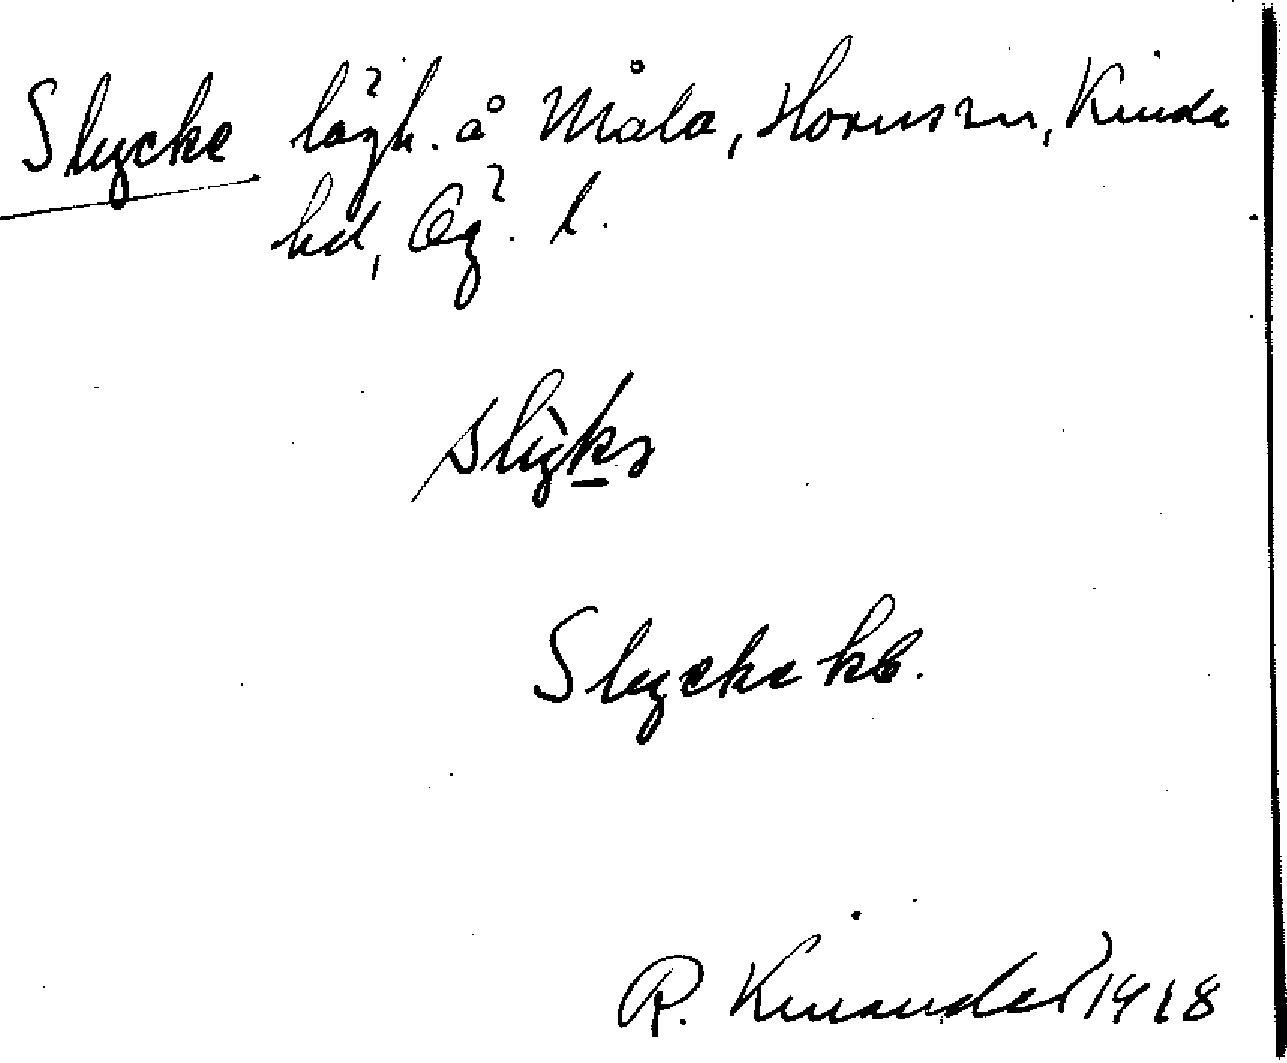 Slycke lägh. å Måla, Hornssn, Kinda
hd, Ög. l.
slỳkə
Slycke kb.
R. Kinander 1918